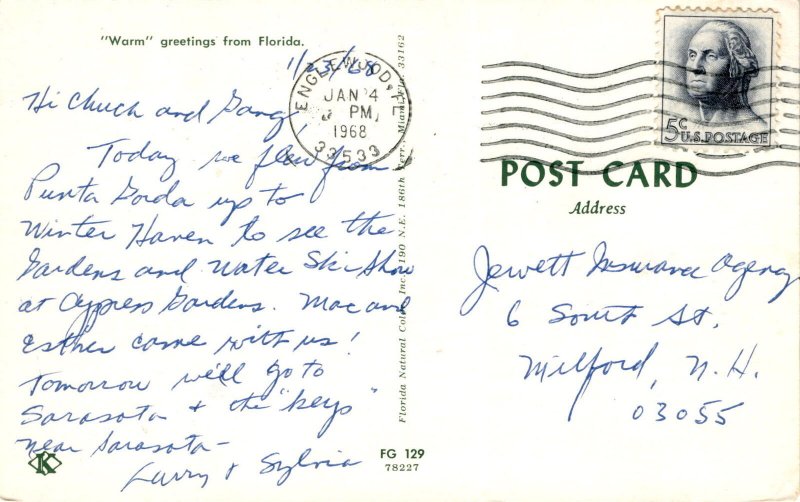 "Warm" greetings from Florida.
1/23/68
Hi Chuck and Gang,
Today we flew from
Punta Gorda up to
Winter Haven to see the
Gardens and Water Ski Show
at Cypress Gardens. Mac and
Esther came with us!
Tomorrow we'll go to
Sarasota & the "keys"
near Sarasota-
Larry & Sylvia
K
ENGLEWOOD, FL
JAN 4
PM
1968
33533
Florida Natural Color, Inc., 190 N.E. 186th Terr., Miami, Fla. 33162
FG 129
78227
5c
U.S. POSTAGE
POST CARD
Address
Jewett Insurance Agency
6 South St.
Milford, N. H.
03055